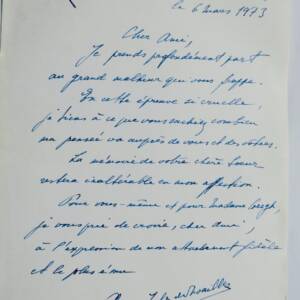 le 6 mars 1973
Cher Ami,
Je prends profondément part
au grand malheur qui vous frappe.
En cette épreuve si cruelle,
je tiens à ce que vous sachiez combien
ma pensée va auprès de vous et des vôtres.
La mémoire de votre chère Sœur
restera inaltérable en mon affection.
Pour vous-même et pour Madame
je vous prie de croire, cher ami,
à l'expression de mon attachement fidèle
et le plus ému